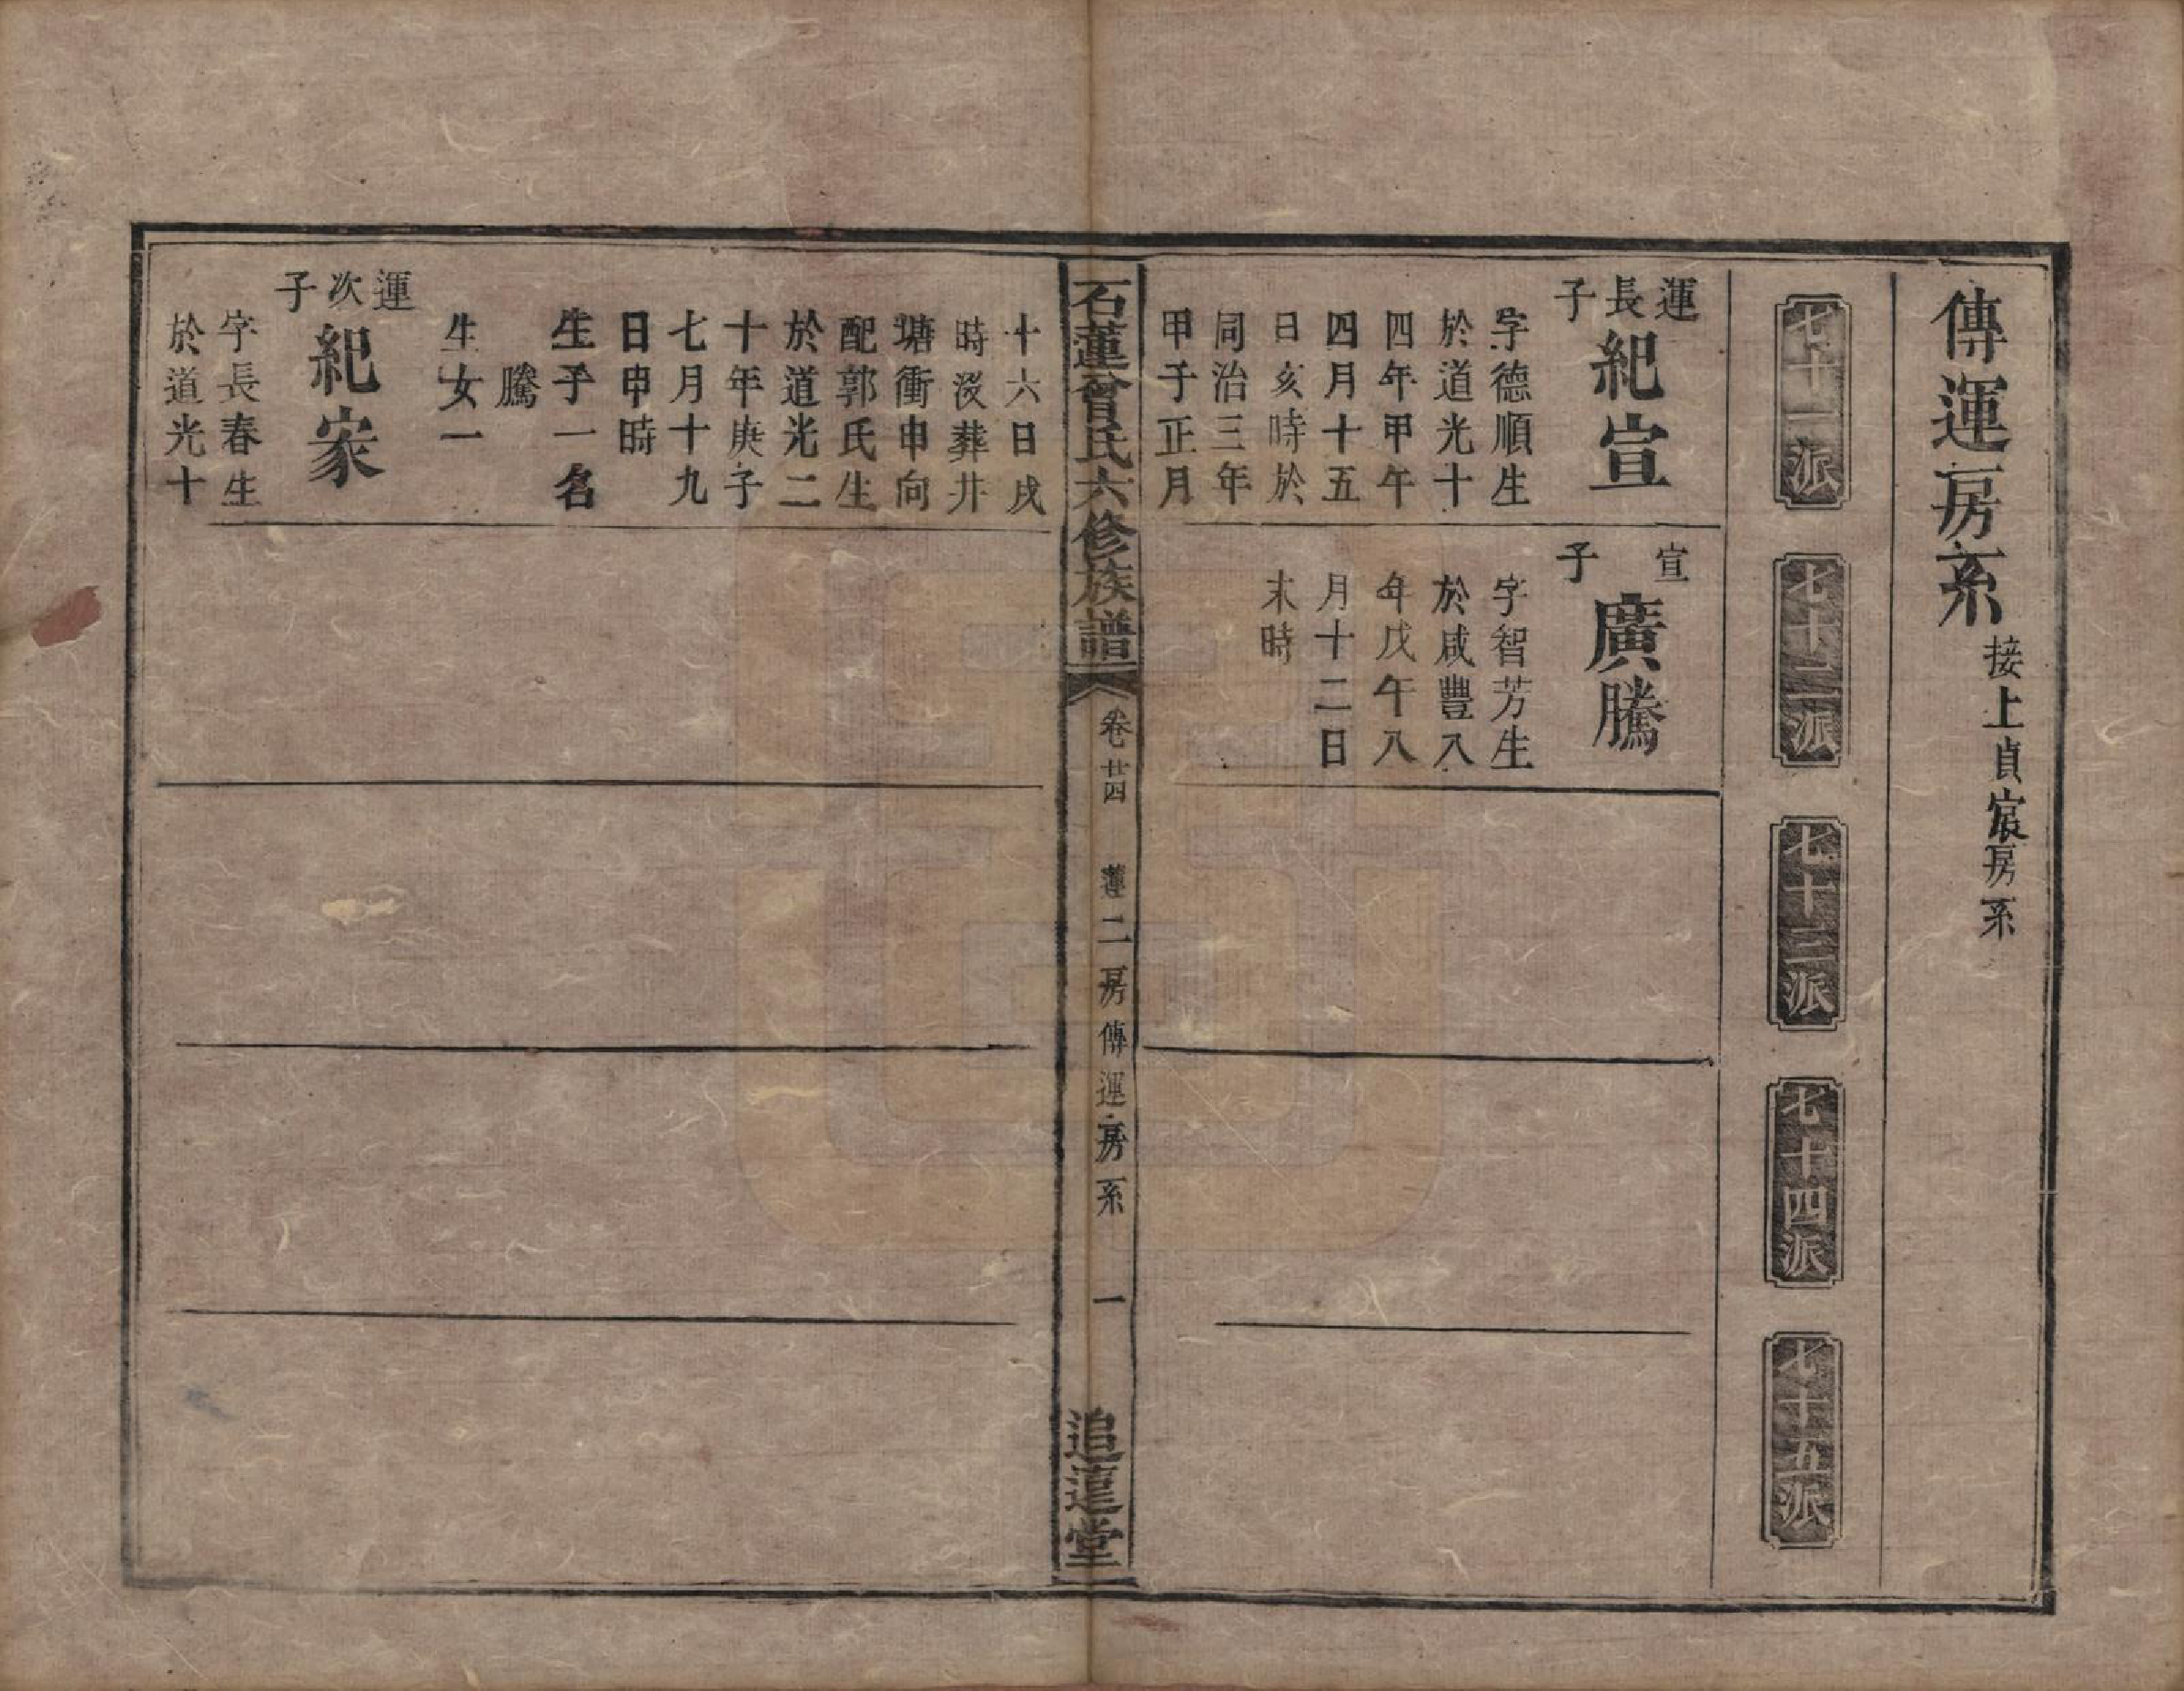 傳運房系 接上貞宸房系
七十一派
七十二派
七十三派
七十四派
七十五派
運長子
紀宣
字德順生
於道光十
四年甲午
四月十五
日亥時於
同治三年
甲子正月
宣子
廣騰
字智芳生
於咸豐八
年戊午八
月十二日
末時
石蓮曾氏六修族譜
卷廿四
蓮二房傳運房系
一
追遠堂
十六日戌
時沒葬井
塘衝申向
配郭氏生
於道光二
十年庚子
七月十九
日申時
生子一名
騰
生女一
運次子
紀家
字長春生
於道光十